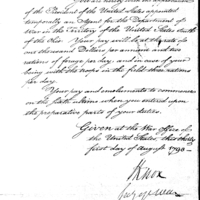 You are hereby are appointed
of the President of the United States appointed
temporally an Agent for the Department of
War in the Territory of the United States South
of the Ohio. Your pay will be at the rate of
one thousand Dollars per annum and two
rations of forage per day, and in case of your
being with the troops in the field three rations
per day.
Your pay and emoluments to commence
on the
when you entered upon
the preparative parts of your duties.
Given at the War office of
the United States this thirty
first day of August 1790.
H Knox
Secy of War